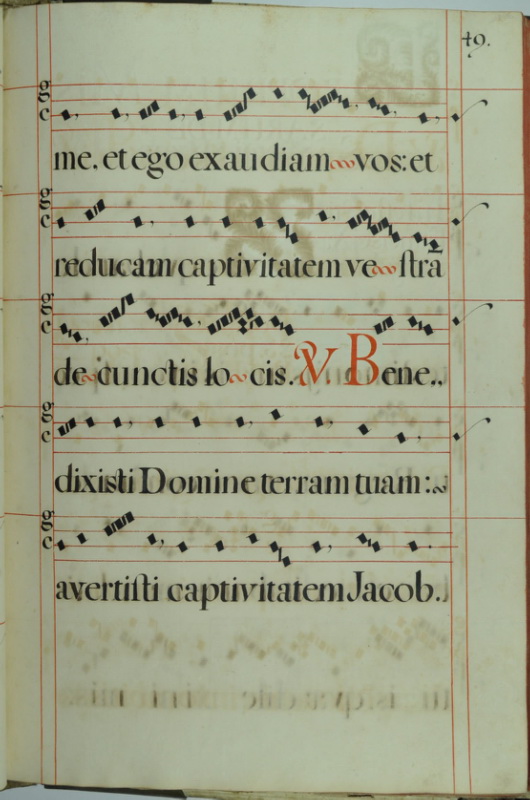 49.
me. et ego exaudiam vos: et
reducam captivitatem ve ſtrā
de cunctis lo cis. V. Bene..
dixisti Domine terram tuam:
avertiſti captivitatem Jacob.